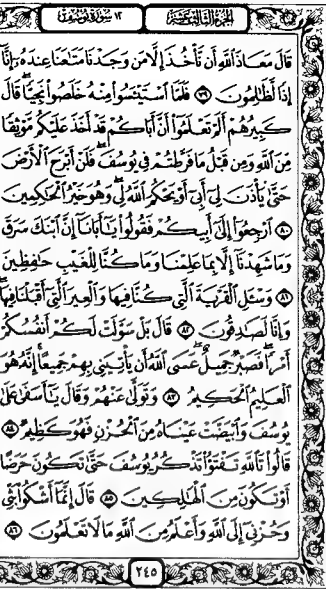 الجزء الثالث عشر
١٢ سورة يوسف
قَالَ مَعَاذَ ٱللَّهِ أَن نَّأْخُذَ إِلَّا مَن وَجَدْنَا مَتَٰعَنَا عِندَهُۥٓ إِنَّآ
إِذًا لَّظَٰلِمُونَ ٧٩ فَلَمَّا ٱسْتَيْـَٔسُوا۟ مِنْهُ خَلَصُوا۟ نَجِيًّا قَالَ
كَبِيرُهُمْ أَلَمْ تَعْلَمُوٓا۟ أَنَّ أَبَاكُمْ قَدْ أَخَذَ عَلَيْكُم مَّوْثِقًا
مِّنَ ٱللَّهِ وَمِن قَبْلُ مَا فَرَّطتُمْ فِى يُوسُفَ فَلَنْ أَبْرَحَ ٱلْأَرْضَ
حَتَّىٰ يَأْذَنَ لِىٓ أَبِىٓ أَوْ يَحْكُمَ ٱللَّهُ لِى وَهُوَ خَيْرُ ٱلْحَٰكِمِينَ
٨٠ ٱرْجِعُوٓا۟ إِلَىٰٓ أَبِيكُمْ فَقُولُوا۟ يَٰٓأَبَانَآ إِنَّ ٱبْنَكَ سَرَقَ
وَمَا شَهِدْنَآ إِلَّا بِمَا عَلِمْنَا وَمَا كُنَّا لِلْغَيْبِ حَٰفِظِينَ
٨١ وَسْـَٔلِ ٱلْقَرْيَةَ ٱلَّتِى كُنَّا فِيهَا وَٱلْعِيرَ ٱلَّتِىٓ أَقْبَلْنَا فِيهَا
وَإِنَّا لَصَٰدِقُونَ ٨٢ قَالَ بَلْ سَوَّلَتْ لَكُمْ أَنفُسُكُمْ
أَمْرًا فَصَبْرٌ جَمِيلٌ عَسَى ٱللَّهُ أَن يَأْتِيَنِى بِهِمْ جَمِيعًا إِنَّهُۥ هُوَ
ٱلْعَلِيمُ ٱلْحَكِيمُ ٨٣ وَتَوَلَّىٰ عَنْهُمْ وَقَالَ يَٰٓأَسَفَىٰ عَلَىٰ
يُوسُفَ وَٱبْيَضَّتْ عَيْنَاهُ مِنَ ٱلْحُزْنِ فَهُوَ كَظِيمٌ ٨٤
قَالُوا۟ تَٱللَّهِ تَفْتَؤُا۟ تَذْكُرُ يُوسُفَ حَتَّىٰ تَكُونَ حَرَضًا
أَوْ تَكُونَ مِنَ ٱلْهَٰلِكِينَ ٨٥ قَالَ إِنَّمَآ أَشْكُوا۟ بَثِّى
وَحُزْنِىٓ إِلَى ٱللَّهِ وَأَعْلَمُ مِنَ ٱللَّهِ مَا لَا تَعْلَمُونَ ٨٦
٢٤٥